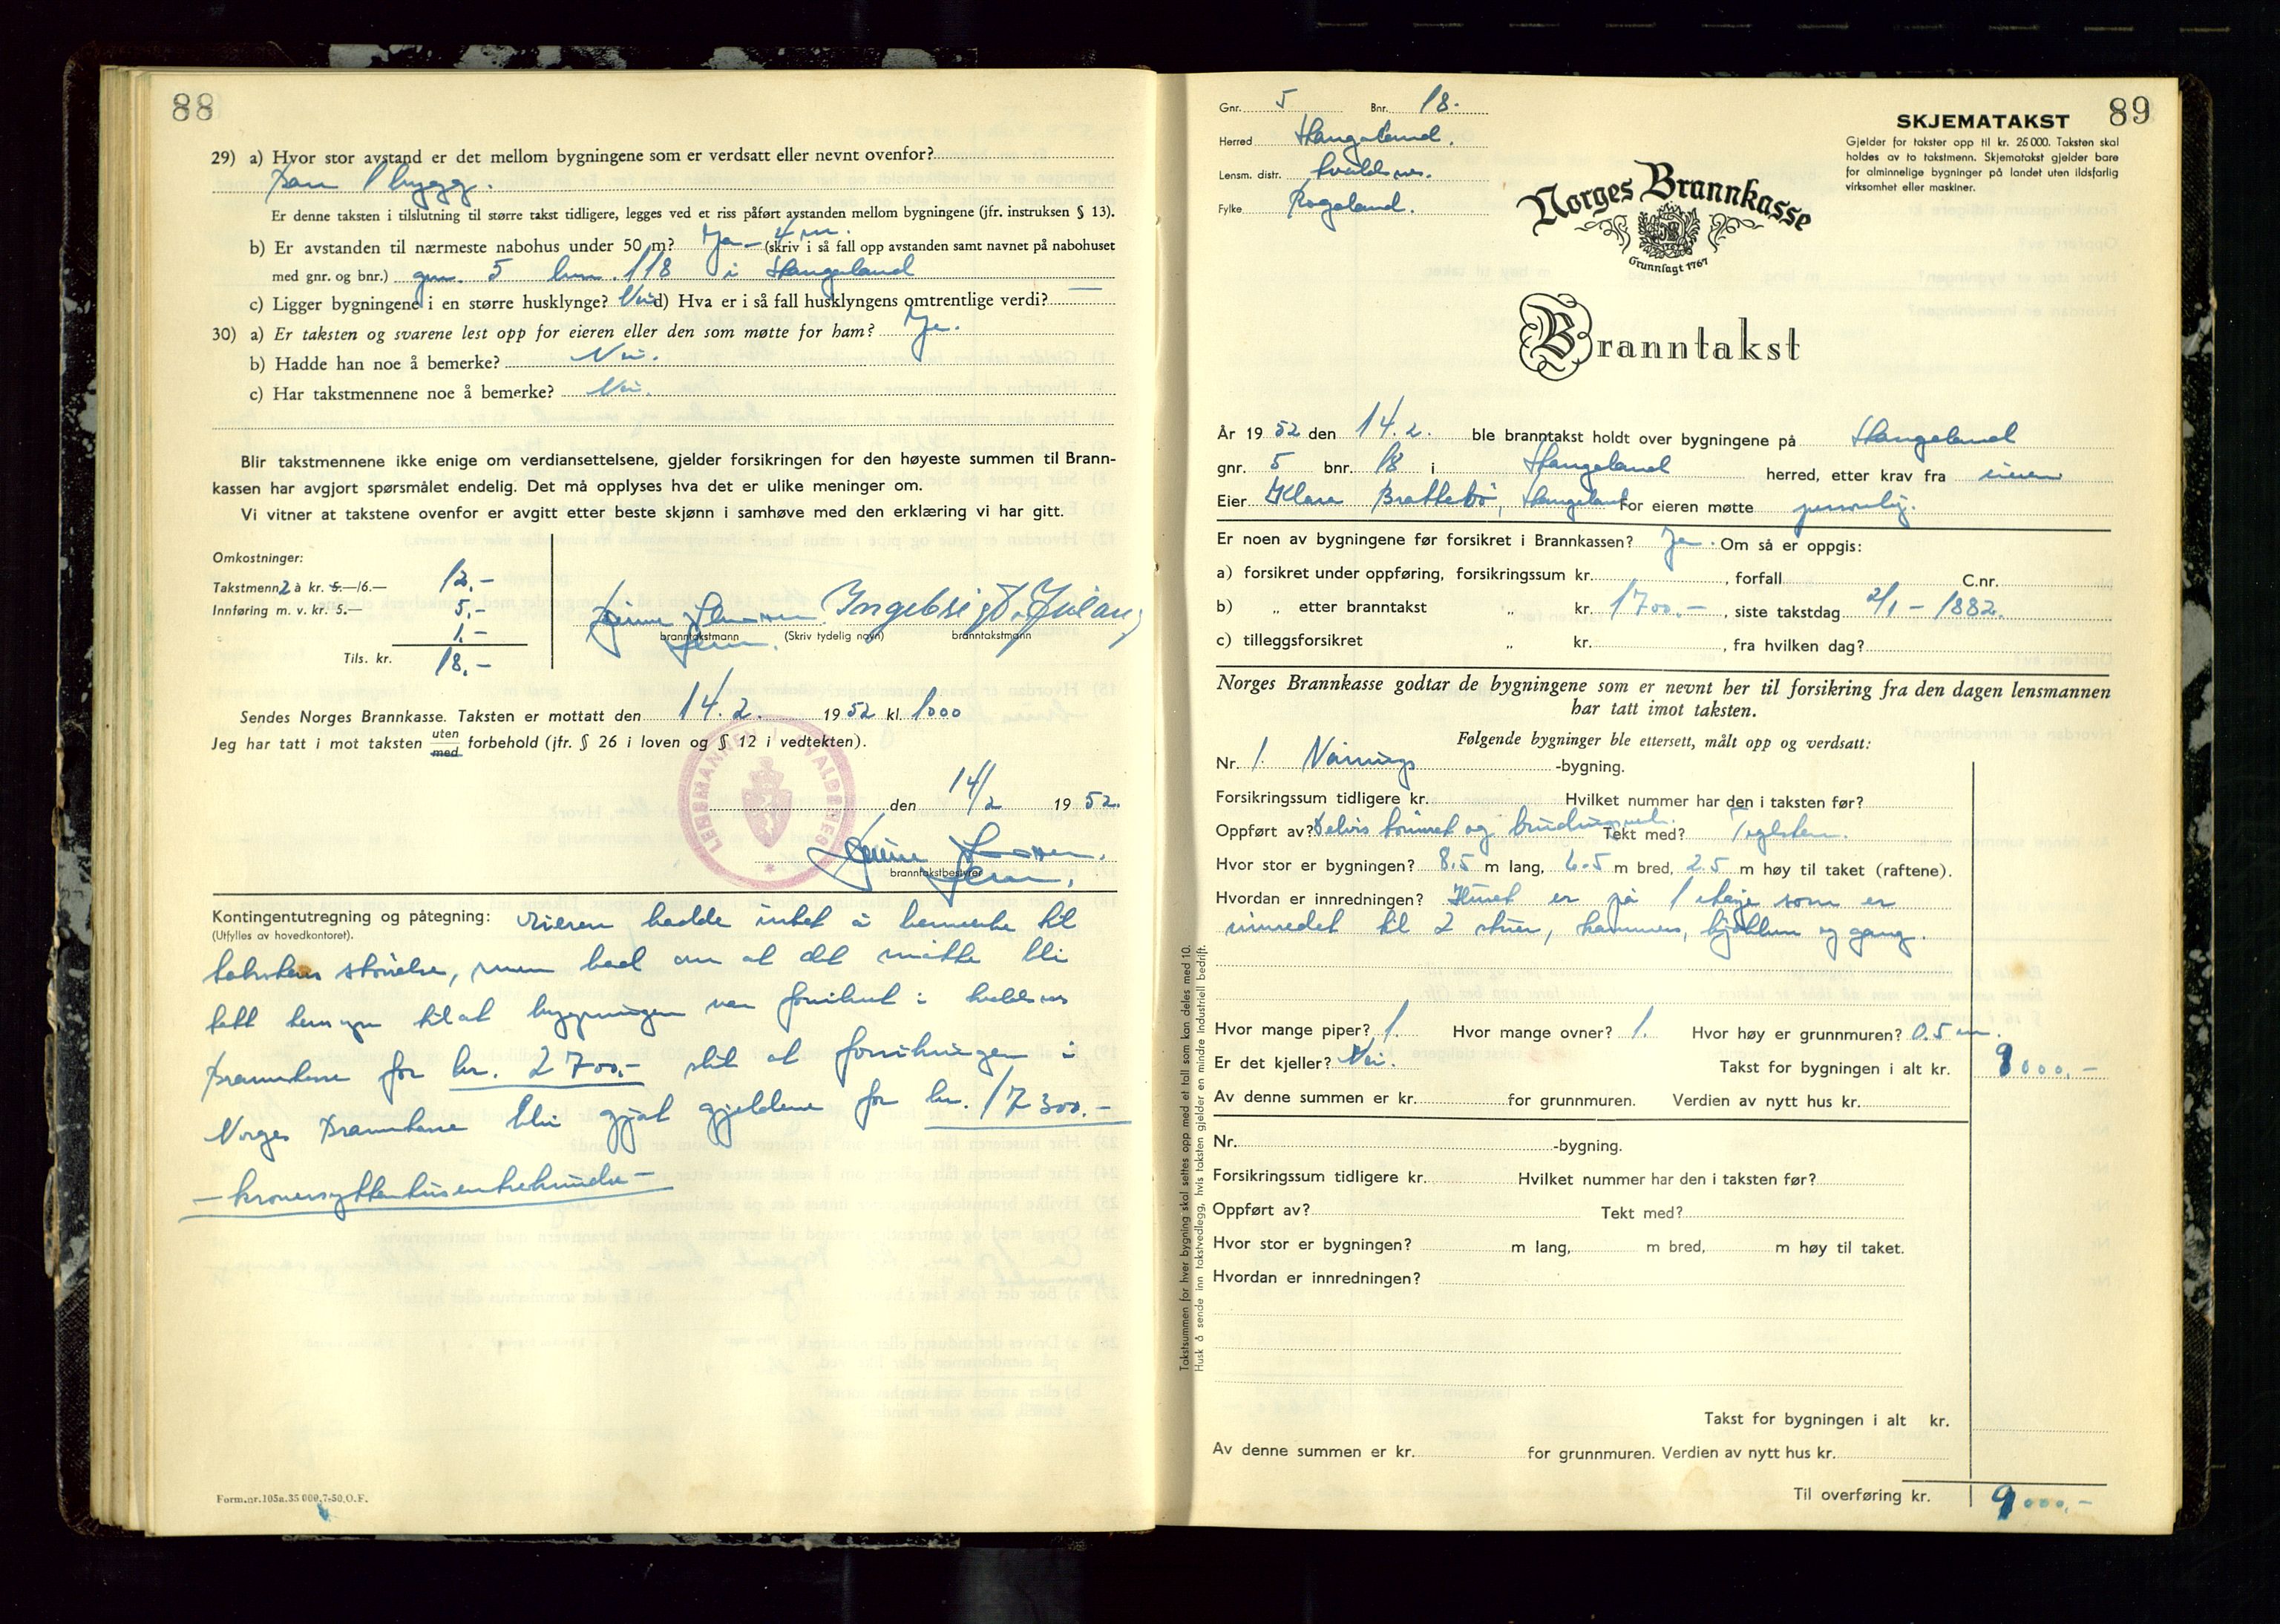 88
29) a) Hvor stor avstand er det mellom bygningene som er verdsatt eller nevnt ovenfor?
bare 1 bygg.
Er denne taksten i tilslutning til større takst tidligere, legges ved et riss påført avstanden mellom bygningene (jfr. instruksen § 13).
b) Er avstanden til nærmeste nabohus under 50 m? Ja - 4 m. (skriv i så fall opp avstanden samt navnet på nabohuset
med gnr. og bnr.) gnr. 5 bnr. 118 i Skaugeland
c) Ligger bygningene i en større husklynge? Nei d) Hva er i så fall husklyngens omtrentlige verdi? —
30) a) Er taksten og svarene lest opp for eieren eller den som møtte for ham? Ja.
b) Hadde han noe å bemerke? Nei.
c) Har takstmennene noe å bemerke? Nei.
Blir takstmennene ikke enige om verdiansettelsene, gjelder forsikringen for den høyeste summen til Brann-
kassen har avgjort spørsmålet endelig. Det må opplyses hva det er ulike meninger om.
Vi vitner at takstene ovenfor er avgitt etter beste skjønn i samhøve med den erklæring vi har gitt.
Omkostninger:
Takstmenn 2 à kr. 5.—/6.— 12.-
Innføring m. v. kr. 5.— 5.-
1.-
Tils. kr. 18.-
Ingebrigt
branntakstmann (Skriv tydelig navn) branntakstmann
Sendes Norges Brannkasse. Taksten er mottatt den 14.2. 1952 kl. 1000
Jeg har tatt i mot taksten uten
med forbehold (jfr. § 26 i loven og § 12 i vedtekten).
LENSMANNEN I AVALDSNES
den 14/2 1952.
branntakstbestyrer
Kontingentutregning og påtegning: Eieren hadde intet å bemerke til
(Utfylles av hovedkontoret).
takstens størrelse, men bad om at det måtte bli
tatt hensyn til at bygningen var forsikret i Avaldsnes
Brannkasse for kr. 2700.- slik at forsikringen i
Norges Brannkasse blir gjort gjeldene for kr. 17300.-
- kronersyttentusentrehundre -
Form.nr.105a.35 000.7-50.O.F.
89
Gnr. 5 Bnr. 18.
Herred
Lensm. distr. Avaldsnes.
Fylke Rogaland.
SKJEMATAKST
Gjelder for takster opp til kr. 25 000. Taksten skal
holdes av to takstmenn. Skjematakst gjelder bare
for alminnelige bygninger på landet uten ildsfarlig
virksomhet eller maskiner.
Norges Brannkasse
Grunnlagt 1767
Branntakst
År 1952 den 14.2. ble branntakst holdt over bygningene på
gnr. 5 bnr. 18 i herred, etter krav fra eieren
Eier Klara Brattebø, For eieren møtte personlig.
Er noen av bygningene før forsikret i Brannkassen? Ja. Om så er oppgis:
a) forsikret under oppføring, forsikringssum kr. , forfall C.nr.
b) „ etter branntakst „ kr. 1700.- , siste takstdag 2/1 - 1882.
c) tilleggsforsikret „ kr. , fra hvilken dag?
Norges Brannkasse godtar de bygningene som er nevnt her til forsikring fra den dagen lensmannen
har tatt imot taksten.
Følgende bygninger ble ettersett, målt opp og verdsatt:
Nr. 1. Vånings -bygning.
Forsikringssum tidligere kr. Hvilket nummer har den i taksten før?
Oppført av? Delvis tømret og bindingsverk. Tekt med? Teglsten.
Hvor stor er bygningen? 8.5 m lang, 6.5 m bred, 2.5 m høy til taket (raftene).
Hvordan er innredningen? Huset er på 1 etasje som er
innredet til 2 stuer, kammers, kjøkken og gang.
Hvor mange piper? 1. Hvor mange ovner? 1. Hvor høy er grunnmuren? 0.5 m.
Er det kjeller? Nei. Takst for bygningen i alt kr. 9000.-
Av denne summen er kr. for grunnmuren. Verdien av nytt hus kr.
Nr. -bygning.
Forsikringssum tidligere kr. Hvilket nummer har den i taksten før?
Oppført av? Tekt med?
Hvor stor er bygningen? m lang, m bred, m høy til taket.
Hvordan er innredningen?
Takst for bygningen i alt kr.
Av denne summen er kr. for grunnmuren. Verdien av nytt hus kr.
Til overføring kr. 9000.-
Takstsummen for hver bygning skal settes opp med et tall som kan deles med 10.
Husk å sende inn takstvedlegg, hvis taksten gjelder en mindre industriell bedrift.